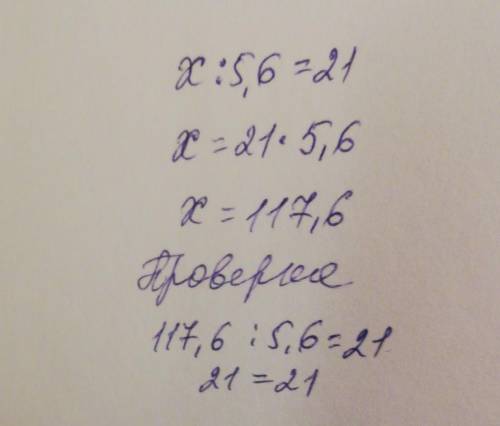 x : 5,6 = 21
x = 21 · 5,6
x = 117,6
Проверка
117,6 : 5,6 = 21
21 = 21